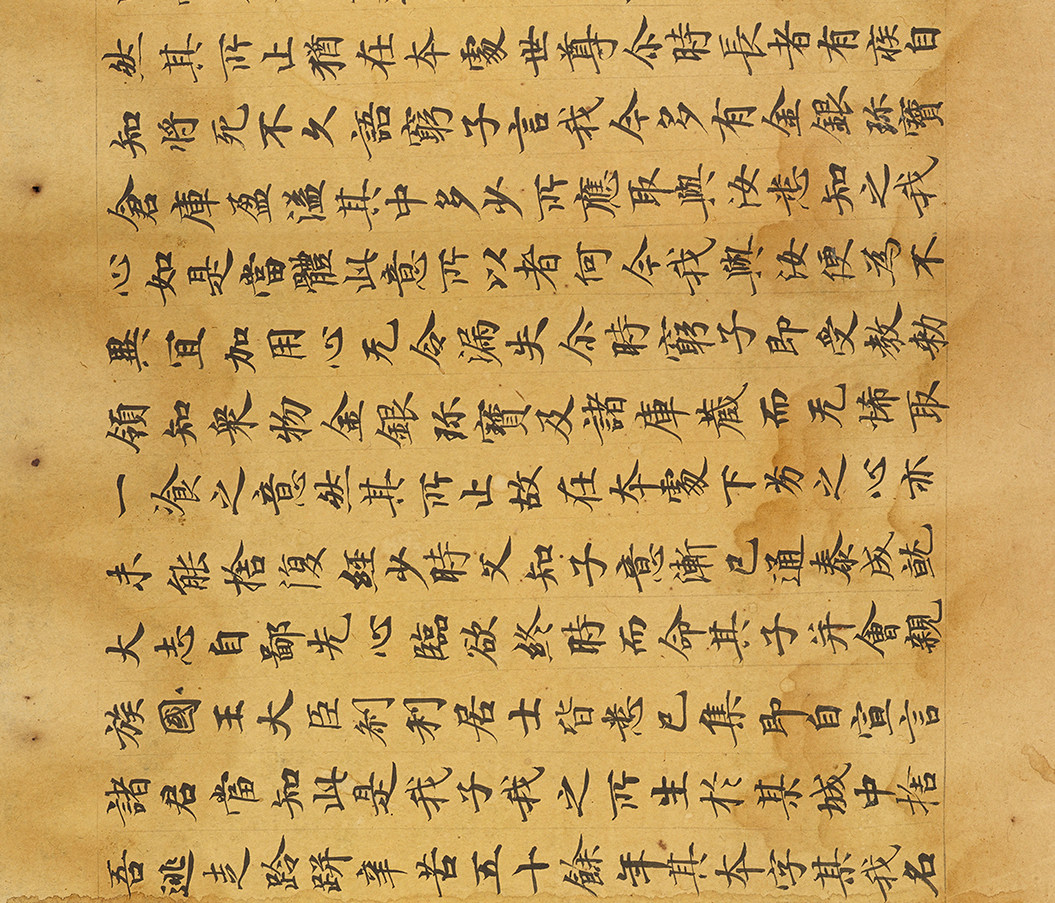 然其所止猶在本處世尊尒時長者有疾自
知將死不久語窮子言我今多有金銀珎寶
倉庫盈溢其中多少所應取與汝悉知之我
心如是當體此意所以者何今我與汝便為不
異宜加用心无令漏失尒時窮子即受教勑
領知衆物金銀珎寶及諸庫藏而无悕取
一飡之意然其所止故在本處下劣之心亦
未能捨復經少時父知子意漸已通泰成就
大志自鄙先心臨欲終時而命其子并會親
族國王大臣剎利居士皆悉已集即自宣言
諸君當知此是我子我之所生於某城中捨
吾逃走跉跰辛苦五十餘年其本字某我名